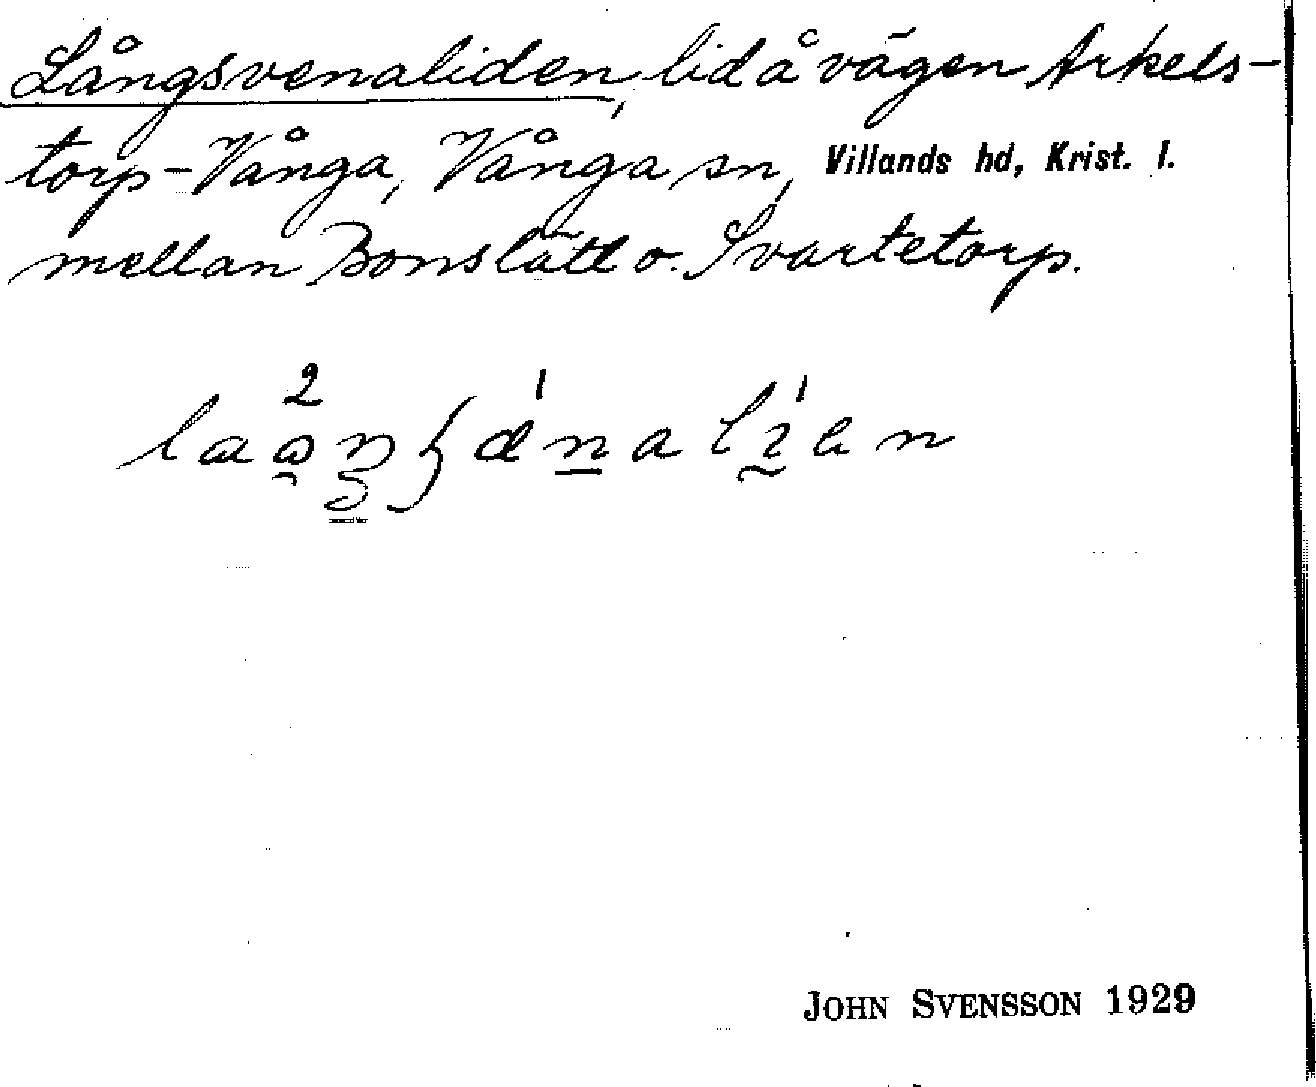 Långsvenaliden, lid å vägen Arkels-
torp-Vånga, Vånga sn, Villands hd, Krist. l.
mellan Bonslätt o. Svartetorp.
JOHN SVENSSON 1929